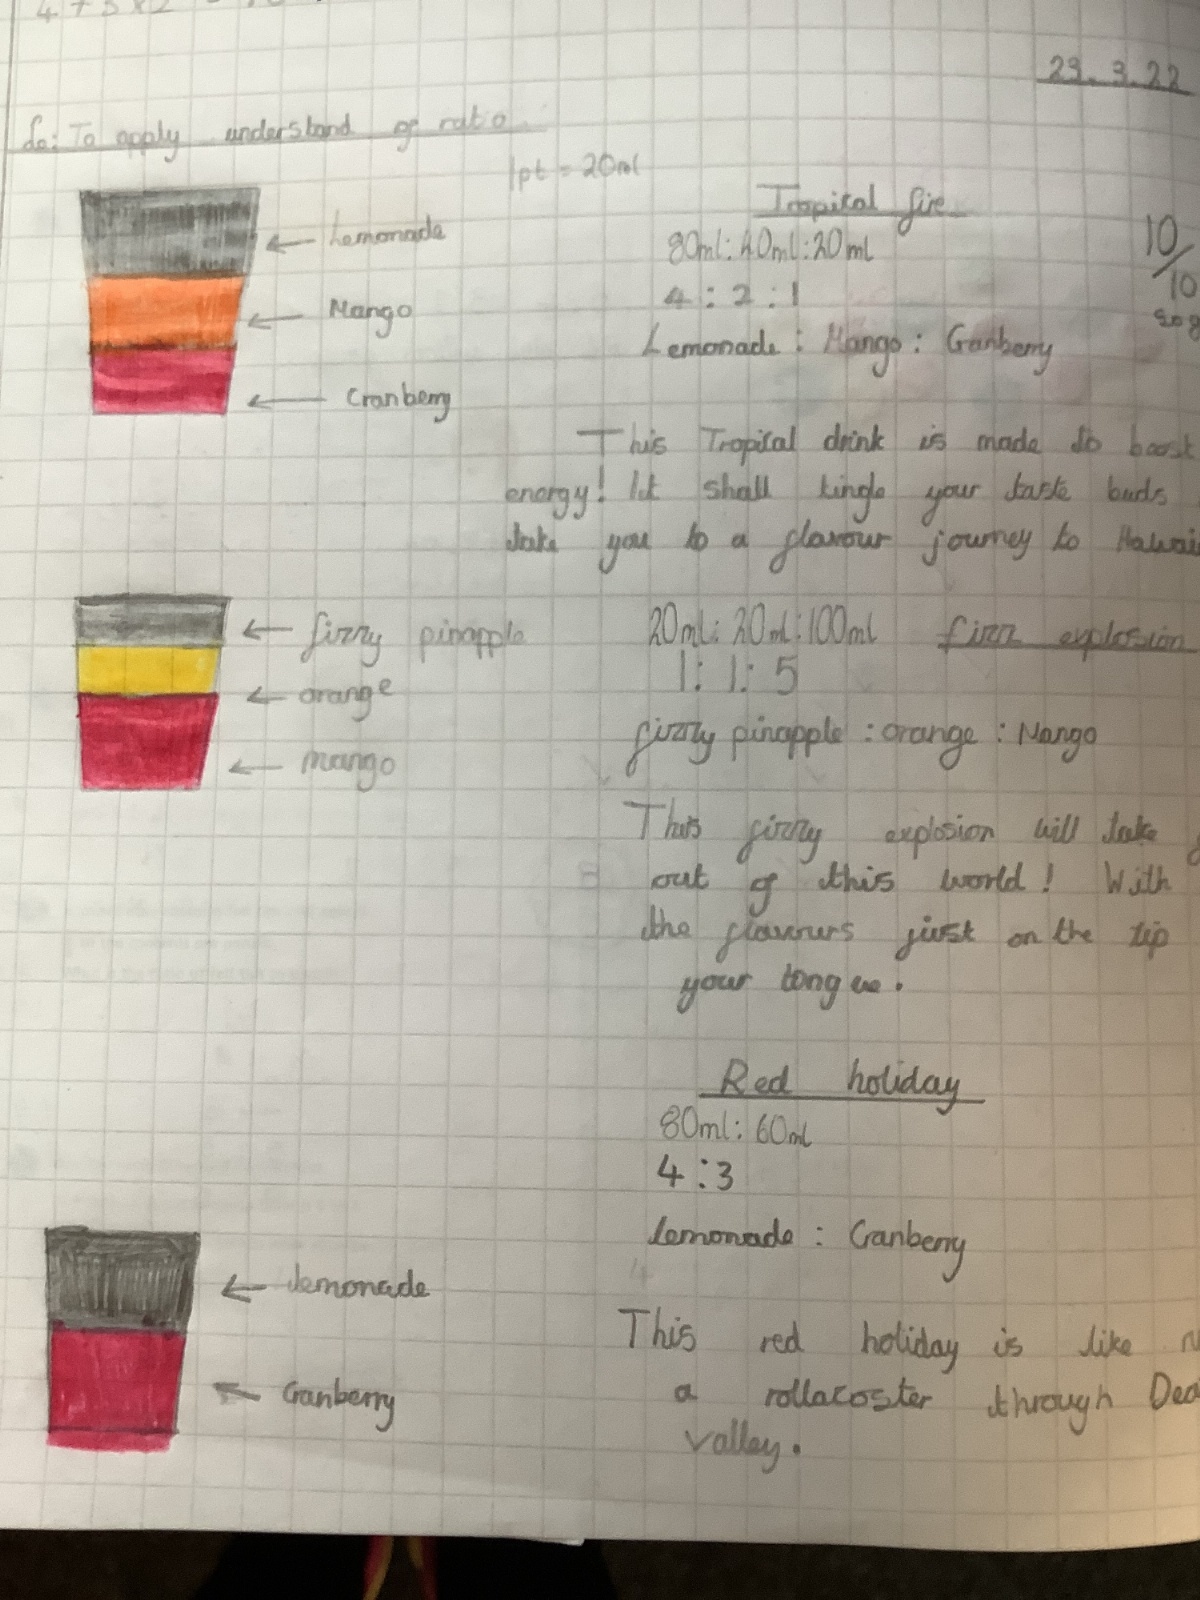 4 + 3 x 2
29.3.22
Lo: To apply understand of ratio
1pt = 20ml
Tropical fire
80ml: 40ml: 20ml
10/10
4 : 2 : 1
Lemonade : Mango : Cranberry
Lemonade
Mango
Cranberry
This Tropical drink is made to boost
energy! It shall tingle your taste buds
take you to a flavour journey to Hawaii
fizzy pinapple
orange
mango
20ml: 20ml: 100ml fizz explosion
1: 1: 5
fizzy pinapple : orange : Mango
This fizzy explosion will take
out of this world! With
the flavours just on the tip
your tongue.
Red holiday
80ml: 60ml
4 : 3
Lemonade : Cranberry
lemonade
Cranberry
This red holiday is like
a rollacoster through
valley.